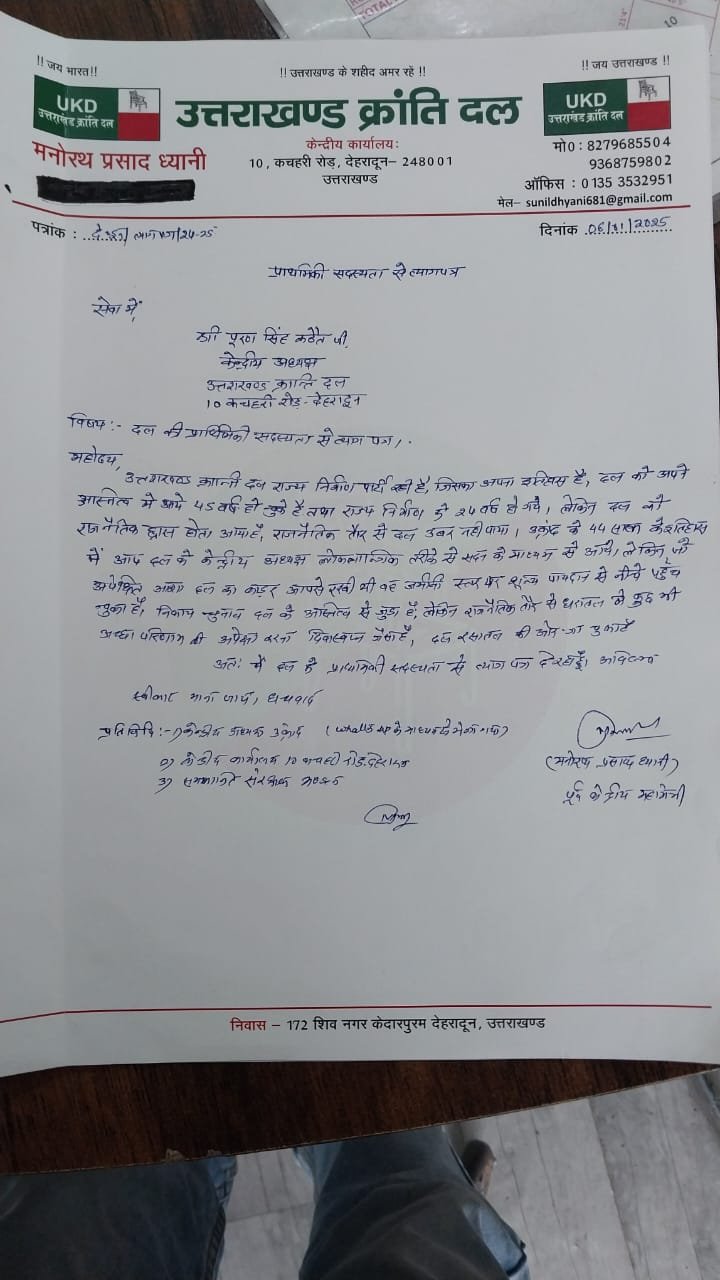 !! जय भारत!!
!! उत्तराखण्ड के शहीद अमर रहें !!
!! जय उत्तराखण्ड !!
UKD
उत्तराखंड क्रांति दल
उत्तराखण्ड क्रांति दल
UKD
उत्तराखंड क्रांति दल
मनोरथ प्रसाद ध्यानी
केन्द्रीय कार्यालयः
10, कचहरी रोड़, देहरादून– 248001
उत्तराखण्ड
मो0 : 8279685504
9368759802
ऑफिस : 0135 3532951
मेल– sunildhyani681@gmail.com
पत्रांक : /24-25
दिनांक
प्राथमिकी सदस्यता से त्यागपत्र
सेवा में,
श्री पूरण सिंह कठैत जी,
केन्द्रीय अध्यक्ष
उत्तराखण्ड क्रान्ति दल
10 कचहरी रोड़-देहरादून
विषय:- दल की प्राथमिकी सदस्यता से त्याग पत्र।
महोदय,
उत्तराखण्ड क्रान्ती दल राज्य निर्माण पार्टी रही है, जिसका अपना इतिहास है, दल को अपने
अस्तित्व में आये 45 वर्ष हो चुके है तथा राज्य निर्माण को 24 वर्ष हो गये, लेकिन दल की
राजनैतिक ह्रास होता आया है, राजनैतिक तौर से दल उबर नही पाया। उक्रांद के 44 साल के इतिहास
में आप दल के केन्द्रीय अध्यक्ष लोकतान्त्रिक तरीके से सदन के माध्यम से आये, लेकिन जो
अपेक्षित आशा दल का कैडर आपसे रखी थी वह जमीनी स्तर पर शून्य पायदान से नीचे पहुँच
चुका है, निकाय चुनाव दल के अस्तित्व से जुड़ा है, लेकिन राजनैतिक तौर से धरातल से कुछ भी
अच्छा परिणाम की अपेक्षा करना दिवास्वप्न जैसा है, दल रसातल की ओर जा चुका है
अतः में दल के प्राथमिकी सदस्यता से त्याग पत्र दे रहा हूँ। अविलम्ब
स्वीकार माना जाये, धन्यवाद
प्रतिलिपि:- 1) केन्द्रीय अध्यक्ष उक्रांद (whats up के माध्यम से भेजा गया)
2) केन्द्रीय कार्यालय 10 कचहरी रोड़ देहरादून
3) संरक्षक
(मनोरथ प्रसाद ध्यानी)
पूर्व केन्द्रीय महामंत्री
निवास – 172 शिव नगर केदारपुरम देहरादून, उत्तराखण्ड